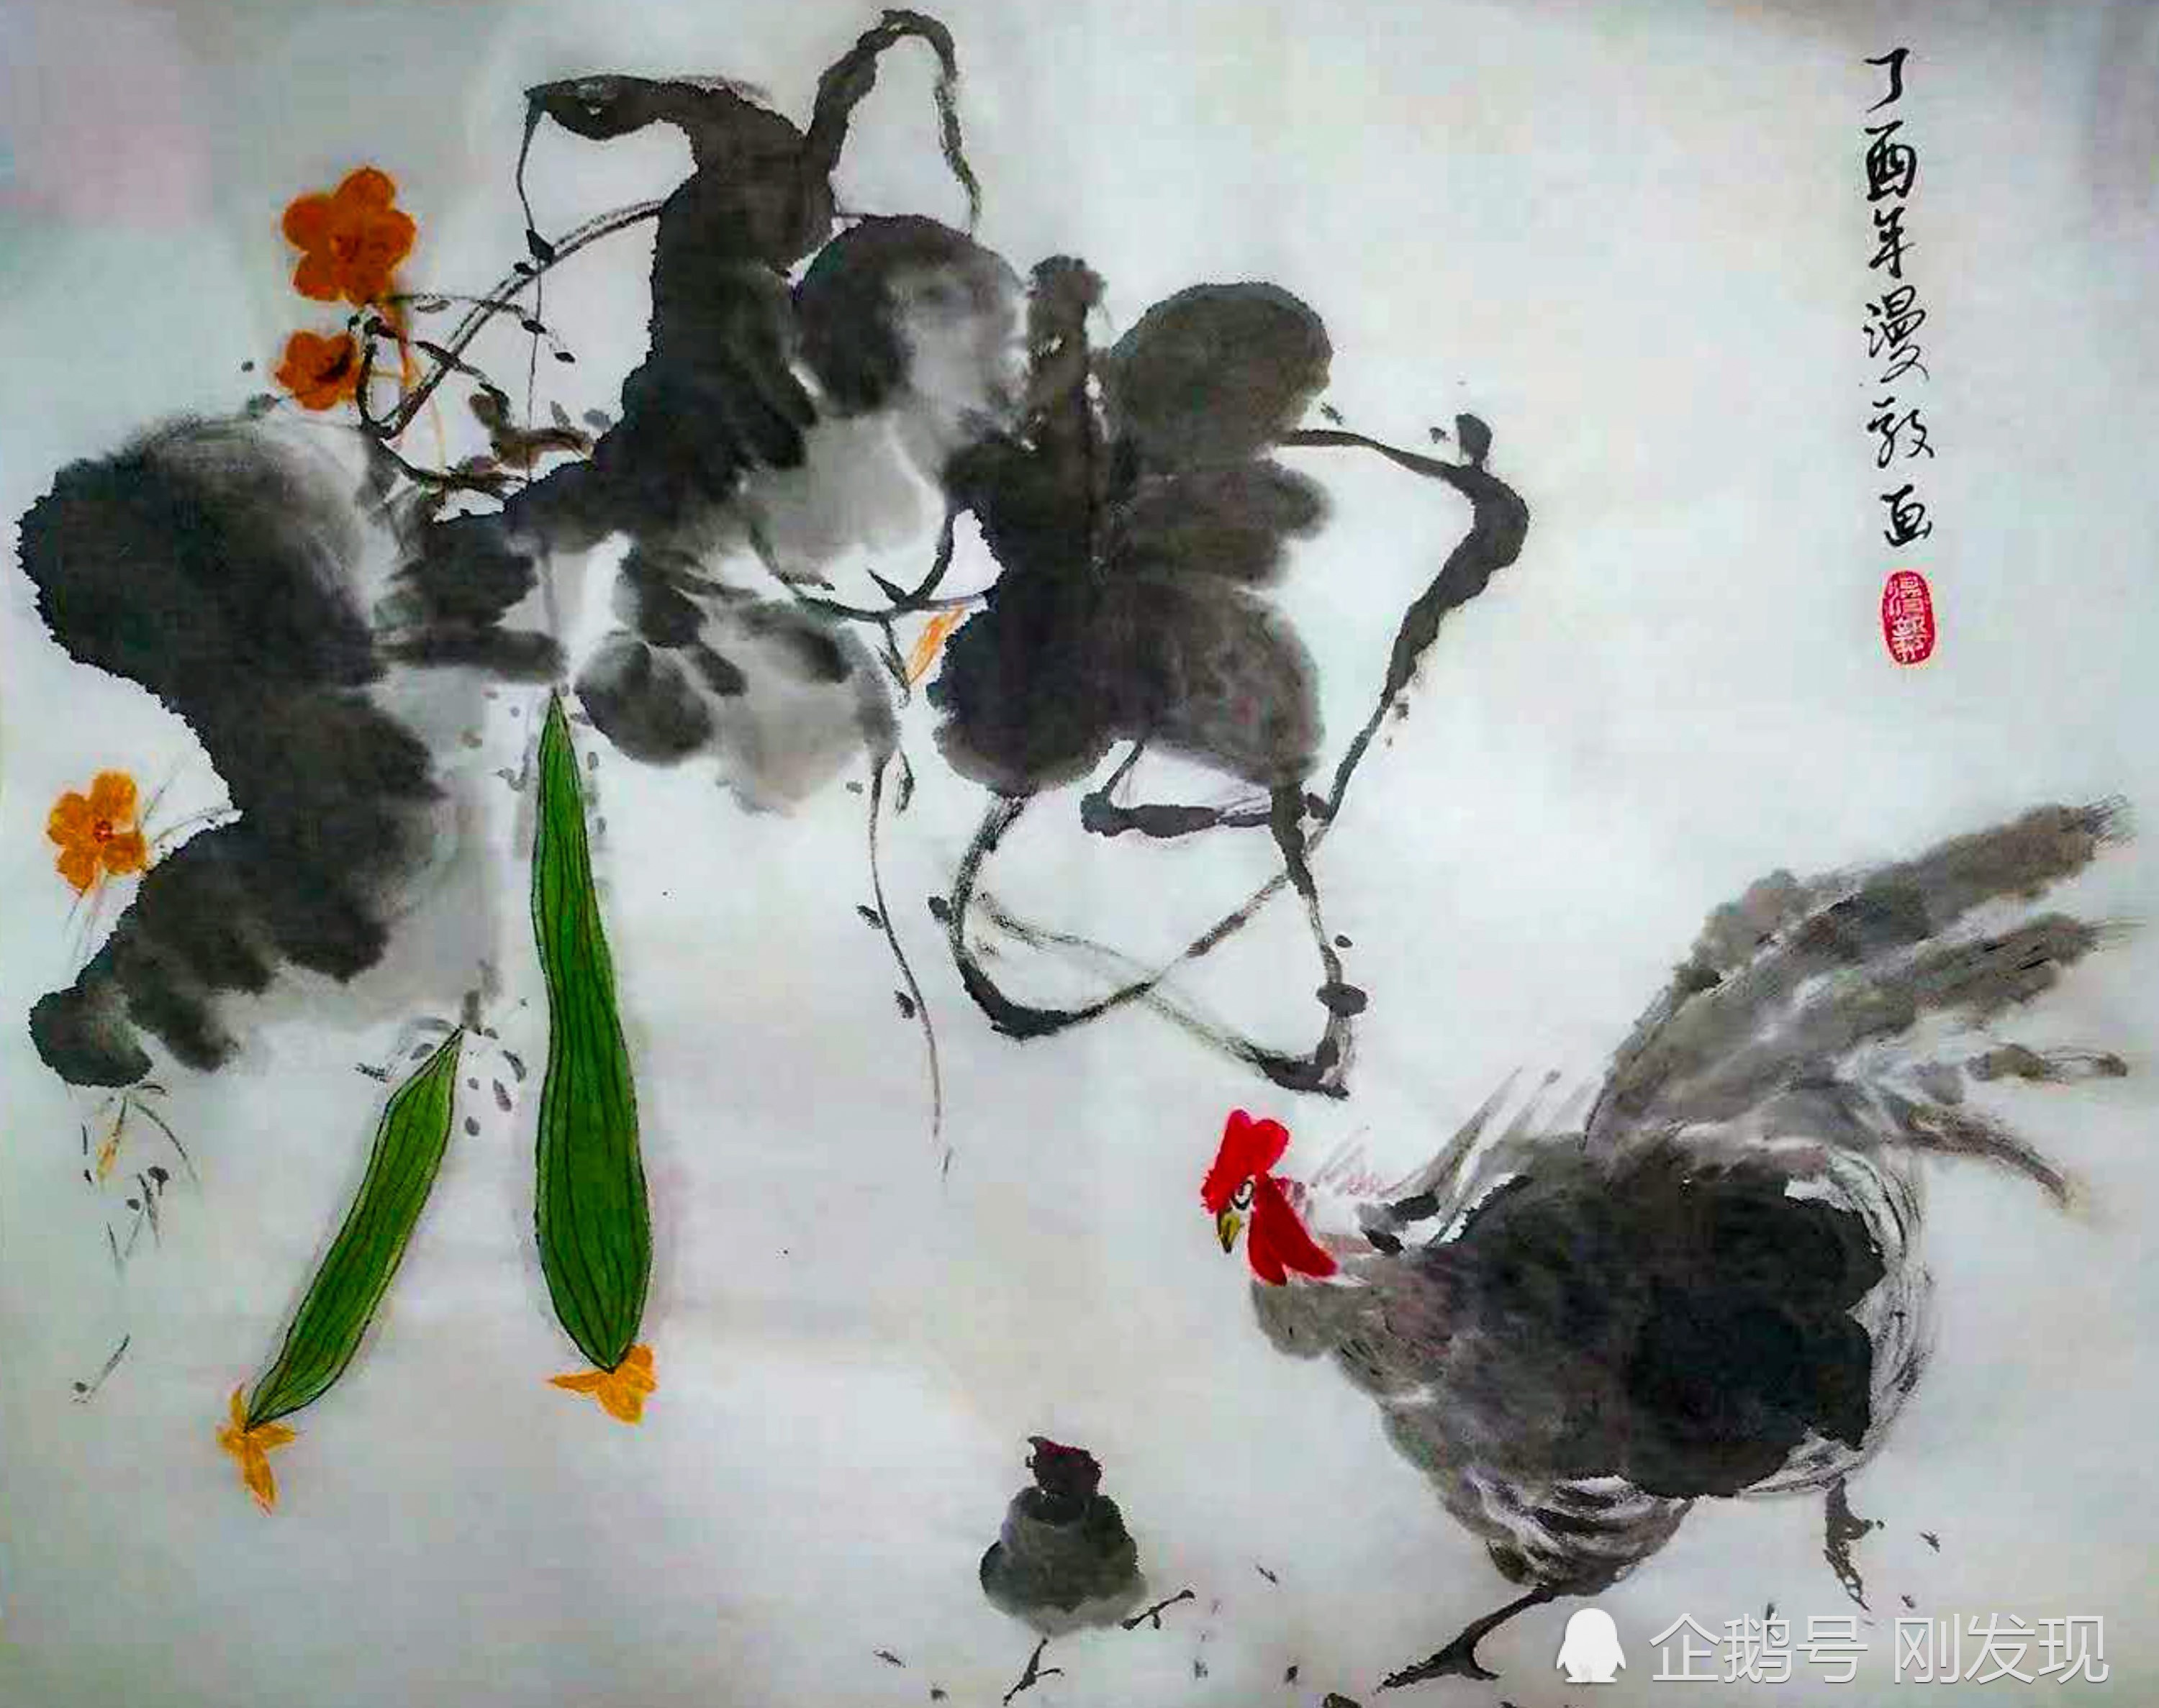 丁酉年漫教画
企鹅号 刚发现